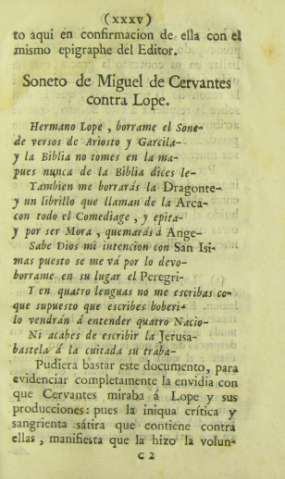 (xxxv)
to aqui en confirmacion de ella con el
mismo epigraphe del Editor.
Soneto de Miguel de Cervantes
contra Lope.
Hermano Lope, borrame el Sone-
de versos de Ariosto y Garcila-
y la Biblia no tomes en la ma-
pues nunca de la Biblia dices le-
Tambien me borrarás la Dragonte-
y un librillo que llaman de la Arca-
con todo el Comediage, y epita-
y por ser Mora, quemarás á Ange-
Sabe Dios mi intencion con San Isi-
mas puesto se me vá por lo devo-
borrame en su lugar el Peregri-
Y en quatro lenguas no me escribas co-
que supuesto que escribes boberi-
lo vendrán á entender quatro Nacio-
Ni acabes de escribir la Jerusa-
bastela á la cuitada su traba-
Pudiera bastar este documento, para
evidenciar completamente la envidia con
que Cervantes miraba á Lope y sus
producciones: pues la iniqua crítica y
sangrienta sátira que contiene contra
ellas, manifiesta que la hizo la volun-
C 2